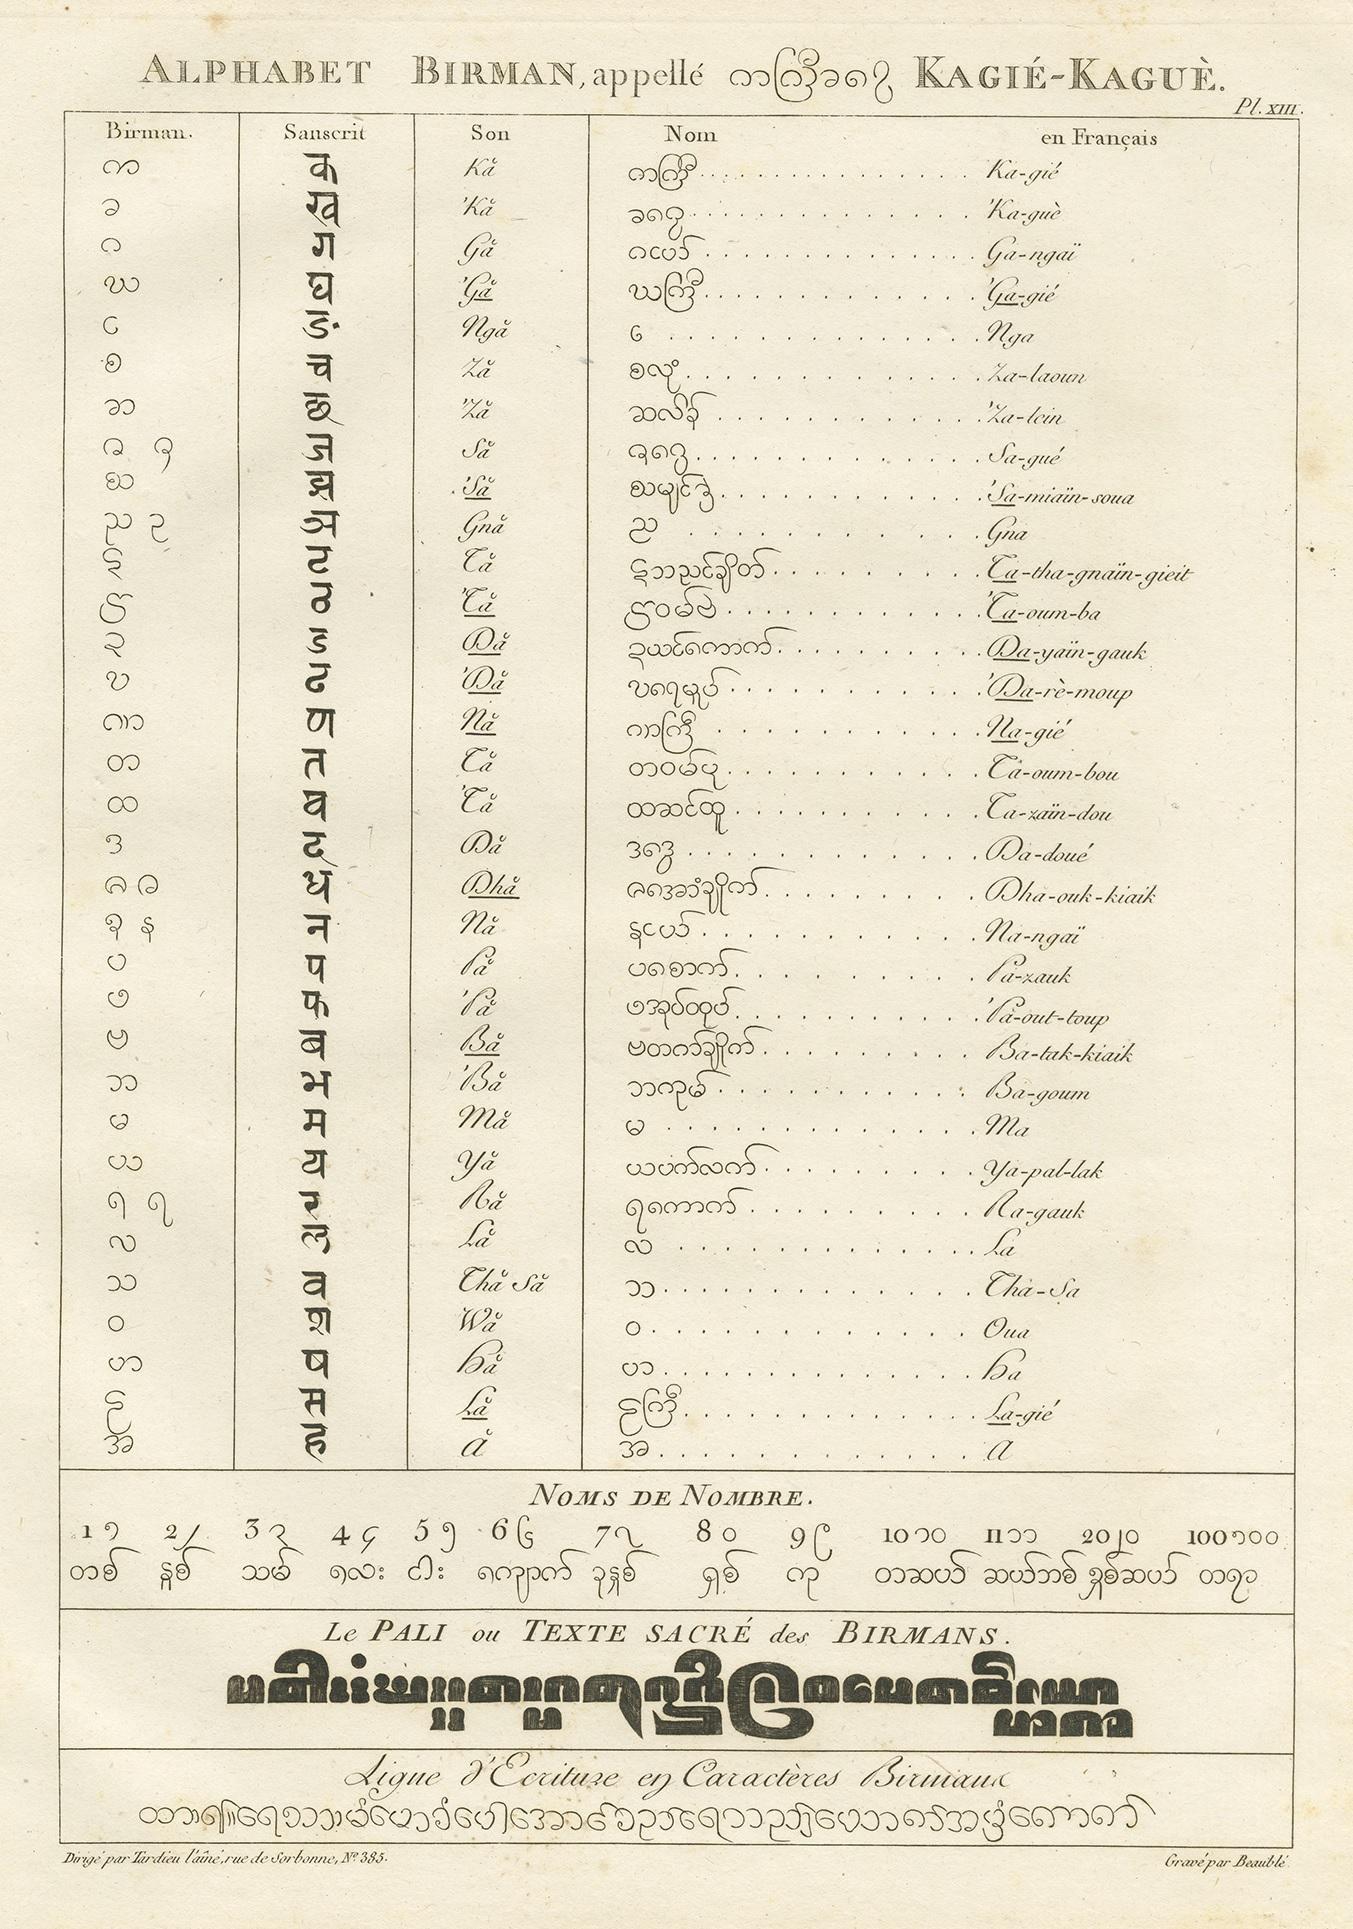 ALPHABET BIRMAN, appellé ကကြီခခွေ KAGIÉ-KAGUÈ.
Pl. XIII.
Birman. Sanscrit Son Nom en Français
က क Kă ကကြီ Ka-gié
ခ ख 'Kă ခခွေ 'Ka-guè
ဂ ग Gă ဂငယ် Ga-ngaï
ဃ घ 'Gă ဃကြီ 'Ga-gié
င ङ Ngă င Nga
စ च Ză စလုံ Za-laoun
ဆ छ 'Ză ဆလိန် 'Za-lein
ဇ ज Să Sa-gué
ဈ झ 'Să 'Sa-miaïn-soua
ည ဥ ञ Gnă ည Gna
ဋ ट Tă Ta-tha-gnaïn-gieit
ဌ ठ 'Tă ဌဝမ်ဗဲ 'Ta-oum-ba
ဍ ड Dă ဍယင်ကောက် Da-yaïn-gauk
ဎ ढ 'Dă ဎရေမှုပ် 'Da-rè-moup
ဏ ण Nă ဏကြီ Na-gié
တ त Tă တဝမ်ပု Ta-oum-bou
ထ थ 'Tă ထဆင်ထူ Ta-zaïn-dou
ဒ द Dă ဒဒွေ Da-doué
ဓ ध Dhă Dha-ouk-kiaik
န न Nă နငယ် Na-ngaï
ပ प Pă ပစောက် Pa-zauk
ဖ फ 'Pă ဖအုပ်ထုပ် 'Pa-out-toup
ဗ ब Bă ဗတက်ချိုက် Ba-tak-kiaik
ဘ भ 'Bă ဘကုမ် Ba-goum
မ म Mă မ Ma
ယ य Yă ယပက်လက် Ya-pal-lak
ရ र Ră ရကောက် Ra-gauk
လ ल Lă လ La
သ व Thă Să သ Tha-Sa
ဝ श Wă ဝ Oua
ဟ ष Hă ဟ Ha
ဠ स Lă ဠကြီ La-gié
အ ह Ă အ A
NOMS DE NOMBRE.
1 ၁ 2 ၂ 3 ၃ 4 ၄ 5 ၅ 6 ၆ 7 ၇ 8 ၀ 9 ၉ 10 ၁၀ 11 ၁၁ 20 ၂၀ 100 ၁၀၀
တစ် နှစ် သမ် လေး ငါး ခုနှစ် ရှစ် ကု တဆယ် ဆယ်တစ် နှစ်ဆယ် တရာ
Le PALI ou TEXTE SACRÉ des BIRMANS.
Ligne d'Ecriture en Caractères Birmans
Dirigé par Tardieu l'aîné, rue de Sorbonne, No. 385.
Gravé par Beaublé